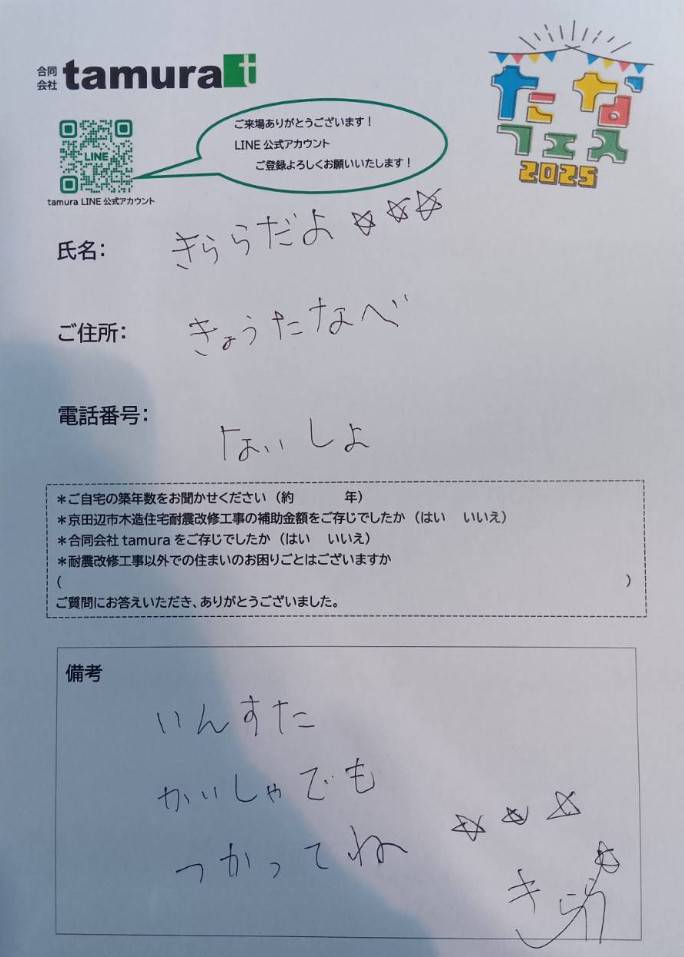 合同
会社 tamura t
たなフェス
2025
LINE
ご来場ありがとうございます！
LINE 公式アカウント
ご登録よろしくお願いいたします！
tamura LINE 公式アカウント
氏名： きららだよ ☆☆☆
ご住所： きょうたなべ
電話番号： ないしょ
＊ご自宅の築年数をお聞かせください（約　　　年）
＊京田辺市木造住宅耐震改修工事の補助金額をご存じでしたか（はい　いいえ）
＊合同会社 tamura をご存じでしたか（はい　いいえ）
＊耐震改修工事以外での住まいのお困りごとはございますか
（　　　）
ご質問にお答えいただき、ありがとうございました。
備考
いんすた
かいしゃでも
つかってね ☆☆☆
きらら☆